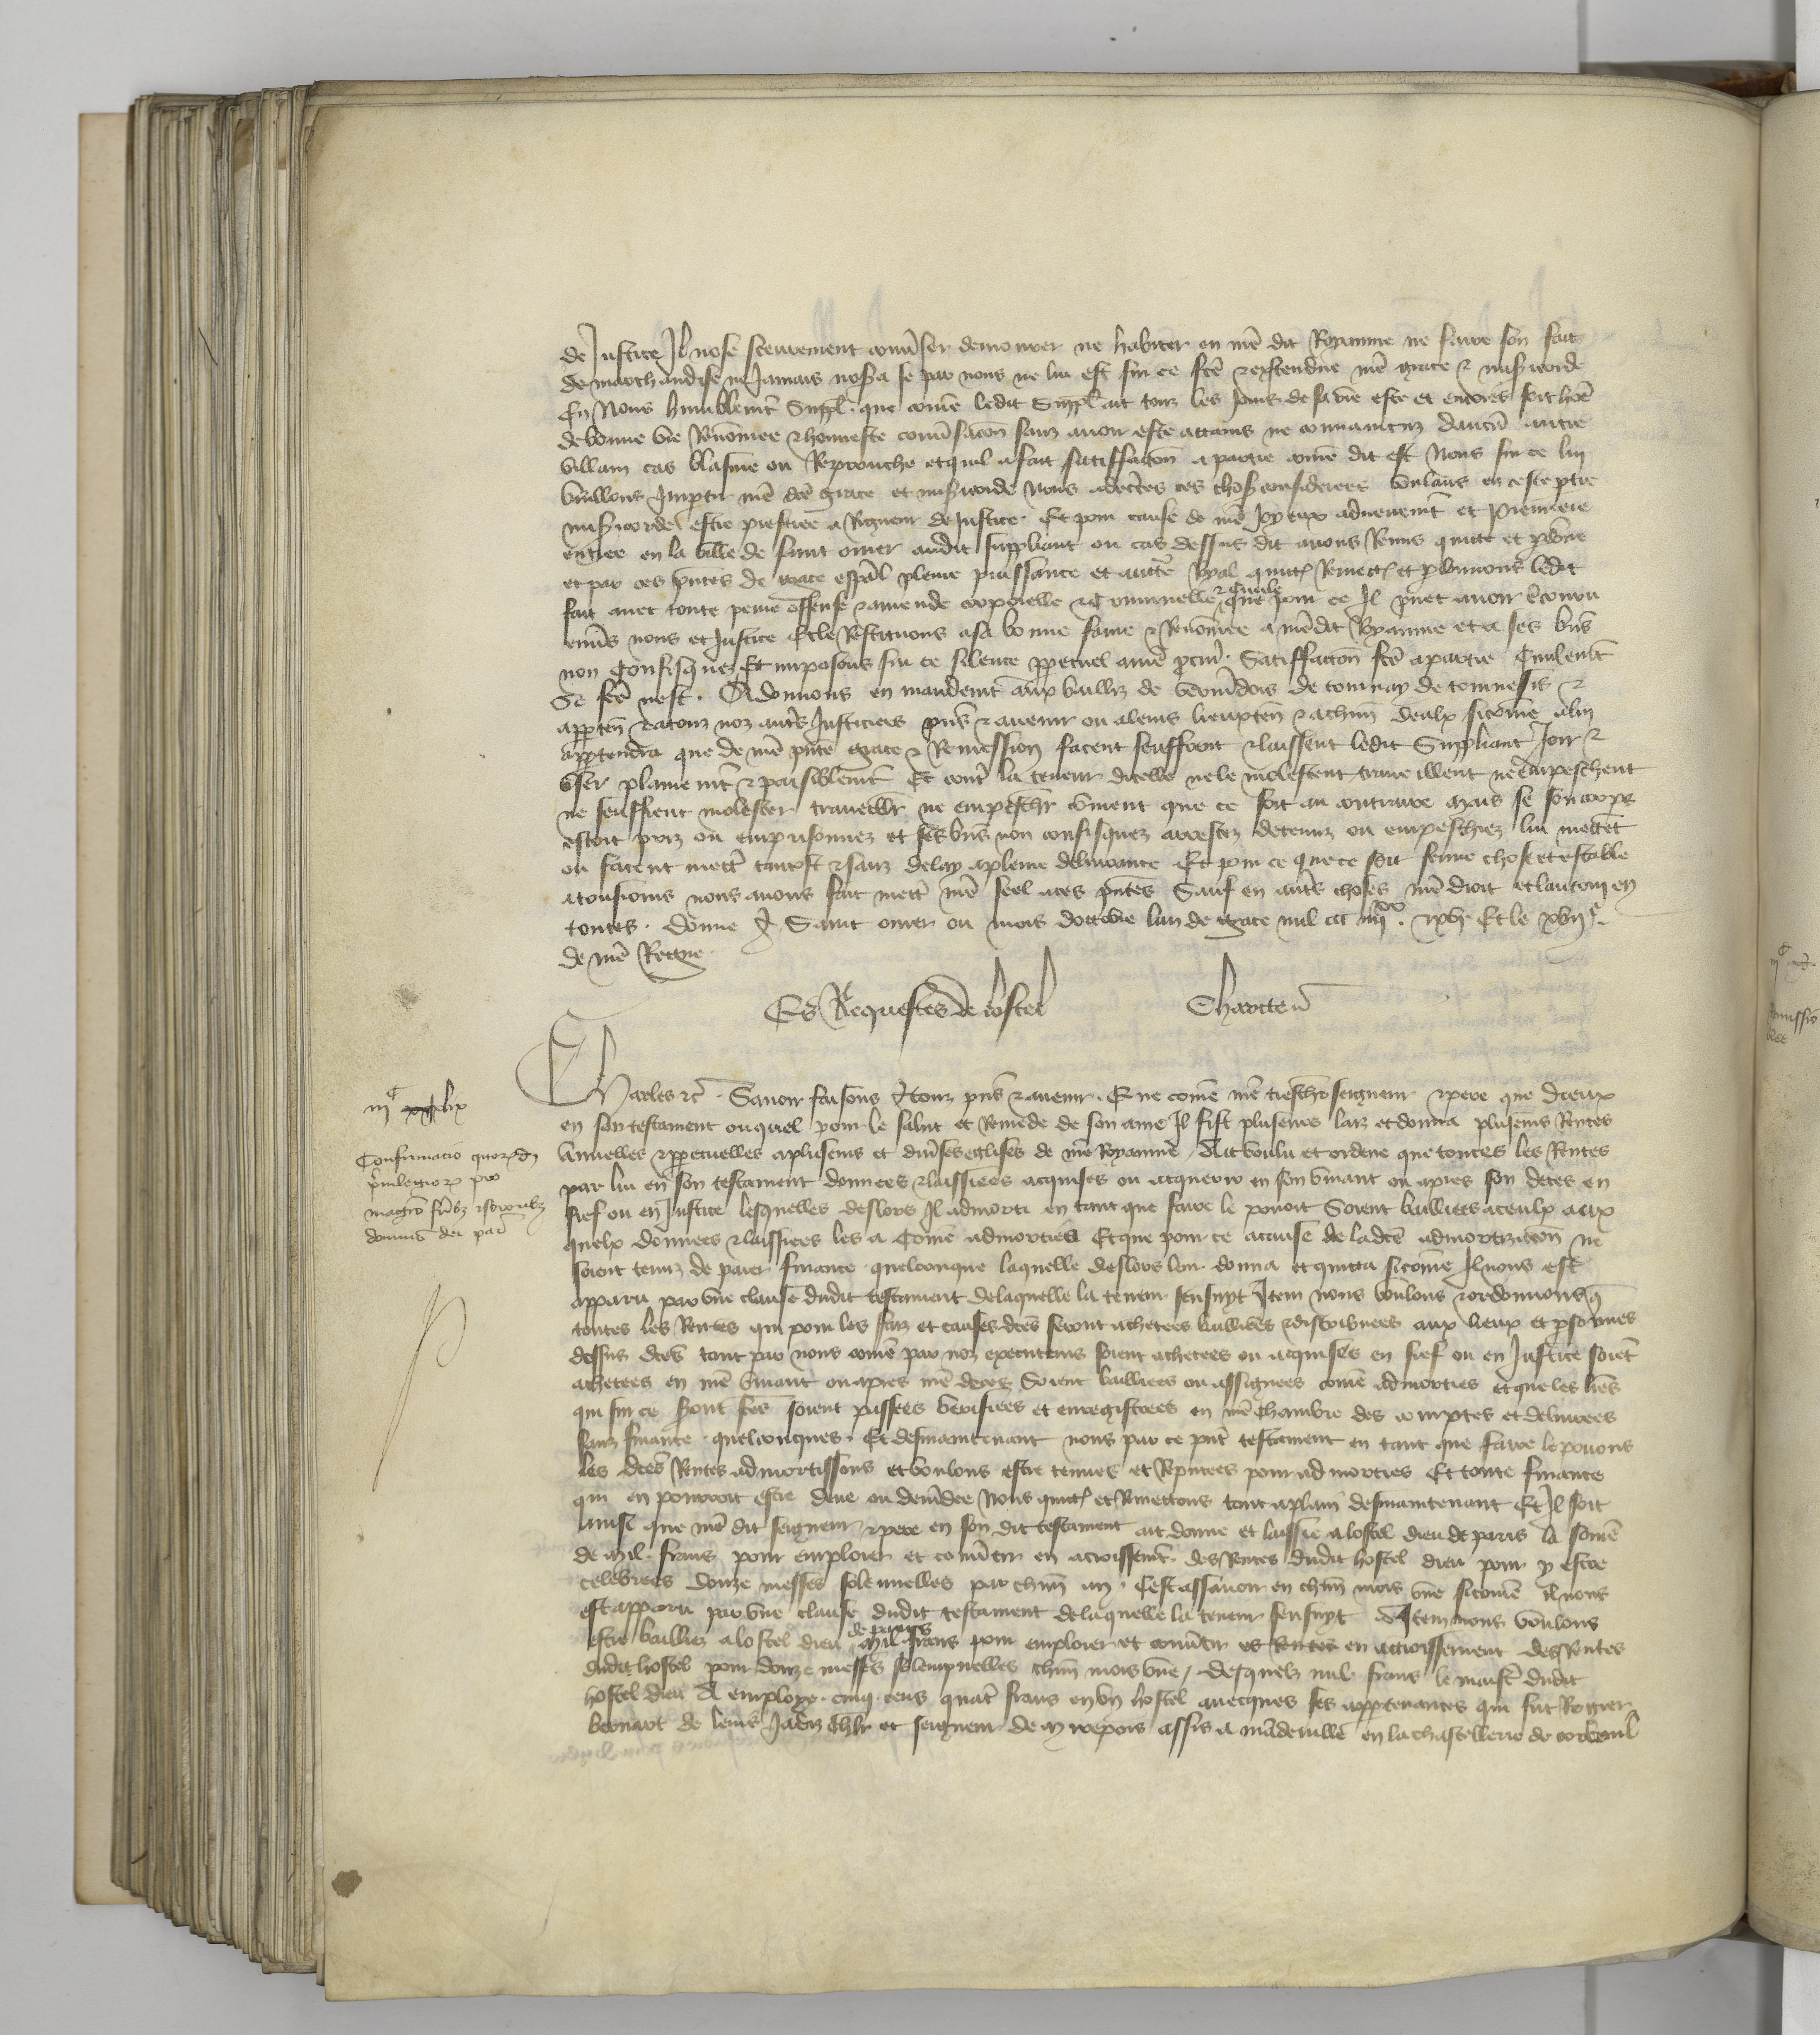 de Justice Il nose seurement conũser demourer ne habiter en nr̃e dit Royaume ne faire son fait
de marchandise ne Jamais nosera se par nous ne lui est sur ce fcẽ et extendue nr̃e grace et misericorde
En nous humblemt̃ suppl̃. que com̃e ledit suppl̃ ait touz les Jours de sa vie este et encores soit hom̃e
de bonne vie Renom̃ee et honneste conũsacõn sanz avoir este attains ne convaincuz daucũ autre
villain cas blasme ou Reprouche et quil a fait satiffaccõn a partie com̃e dit est Nous sur ce lui
vueillons Impartir nr̃e dcẽ grace et misericorde Nous adecertes ces choses considerees voulans en ceste partie
misericorde estre preferee a Rigueur de Justice. Et pour cause de nr̃e Joyeux advenemt̃ et premiere
entree en la ville de saint omer audit suppliant ou cas dessus dit avons Remis quitte et pardonne
et par ces pñtes de grace esp̃al pleine puissance et auctẽ Royal quictõs Remectõs et pardonnons ledit
fait avec toute peine offense et amende corporelle et Criminelle et Civile que pour ce Il peuet avoir encouru
envers nous et Justice Et le Restituons a sa bonne fame et Renom̃ee a nr̃edit Royaume et a ses biens
non confisquez Et imposons sur ce silence perpetuel a nr̃e procur̃. Satiffaccõn fcẽ a partie Civilemẽt
Se fcẽ nest. Si donnons en mandemt̃ aux bailliz de vermãdois de tournay de tournesis et
apparten̄ et a touz noz autr̃s Justiciers pñs et avenir ou a leurs lieuxten̄ et a chũn deulx sicom̃e a lui
appartendra que de nr̃e pñte grace et Remission facent seuffrent et laissent ledit suppliant Joir et
user plainemt̃ et paisiblemt̃ Et contr̃ la teneur dicelle ne le molestent travaillent ne empeschent
ne seuffrent molester travaillr̃ ne empeschr̃ com̃ent que ce soit au contraire Mais se son corps
estoit pris ou emprisonnez et ses biens non confisquez arrestez detenuz ou empeschiez lui mettet
ou facent mettr̃ tantost et sanz delay a pleine delivrance Et pour ce que ce soit ferme chose et estable
a tousiours nous avons fait mettr̃ nr̃e seel a ces pñtes Sauf en autr̃s choses nr̃e droit et lautruy en
toutes. Donne A Saint omer ou mois doctobre lan de grace mil ccc iiiixx. et xvi Et le xviie.
de nr̃e Regne
Es Requestes de lostel Charteñ
Charles etc̃. Savoir faisons A touz pñs et avenir. Que com̃e nr̃e treschr̃ seigneur et pere que dieux
en son testament ouquel pour le salut et Remede de son ame Il fist plusieurs laiz et donna plusieurs Rentes
Annuelles et perpetuelles a plusieurs et div̾ses eglises de nr̃e Royaume / Ait voulu et ordene que toutes les Rentes
par lui en son testament donnees et laissiees acquises ou acquerre en son vivant ou apres son deces en
fief ou en Justice lesquelles deslors Il admorti en tant que faire le pouoit Soient baillees a ceulx aux
quelx donnees et laissiees les a Com̃e admorties Et que pour ce a cause de ladcẽ admortizacõn ne
soient tenuz de paier finance quelconque laquelle deslors leur donna et quitta sicom̃e Il nous est
apparu par vne clause dudit testament de laquelle la teneur sensuyt Item nous voulons et ordonnons q̃
toutes les Rentes qui pour les faiz et causes dcẽs seront achetees baillees et distribuees aux lieux et personnes
dessus dcẽs tant par nous com̃e par noz executeurs soient achetees ou acquises en fief ou en Justice soiẽt
achetees en nr̃e vivant ou apres nr̃e deces Soient baillees ou assignees com̃e admorties et que les lr̃es
qui sur ce seront fcẽs soient passees verifiees et enregistrees en nr̃e Chambre des comptes et delivrees
sanz finance quelconques. Et desmaintenant nous par ce pñt testament en tant que faire le pouons
les dcẽs Rentes admortissons et voulons estre tenues et Reputees pour admorties Et toute finance
qui en pourroit estre deue ou demãdee Nous quictõs et Remettons tout a plain desmaintenant Et Il soit
Ainsi que nr̃e dit seigneur et pere en son dit testament ait donne et laissie a lostel dieu de paris la som̃e
de Mil frans pour emploier et conũtir en acroissemt̃ des Rentes dudit hostel dieu pour y estre
celebrees douze messes solennelles par chũn an. Cest assavoir en chũn mois vne sicom̃e Il nous
est apparu par vne clause dudit testament de laquelle la teneur sensuyt Item nous voulons
estre bailliez a lostel dieu de paris Mil frans pour emploier et conũtir es Rentes en acroissement des Rentes
dudit hostel pour douze messes solempnelles chũn mois vne / Desquelx mil frans le maistr̃ dudit
hostel dieu A emploie. cinq cens quatr̃ frans en vn hostel avecques ses appartenances qui fut Rogier
bernart de leurs Jadiz chlr̃ et seigneur de Mirepois assis a mãdeville en la chastellerie de corbueil
iiic lix
Confirmacio quor̃d̃
privilegior̃ pro
magrõ frĩbz et sororibz
domus dei par̃